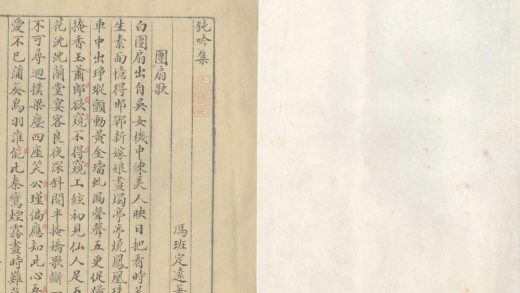 鈍吟集
馮班定遠
團扇歌
白團扇出自吳女機中練美人映日把看時
生素面憶得邯鄲新嫁娘畫扇亭亭燒鳳凰
車中出琤瑽顫動黃金璫虬漏聲聲五更促
掩香玉蕭郎欲窺不得窺上初見仙人足
花沈沈蘭堂宴客良夜深斜開半掩嬌歌斷
不可尋迴撲梁塵四座笑公瑾偏應知此心
愛不已蒲葵鳥羽誰能比秦鸞煙霧畫時難